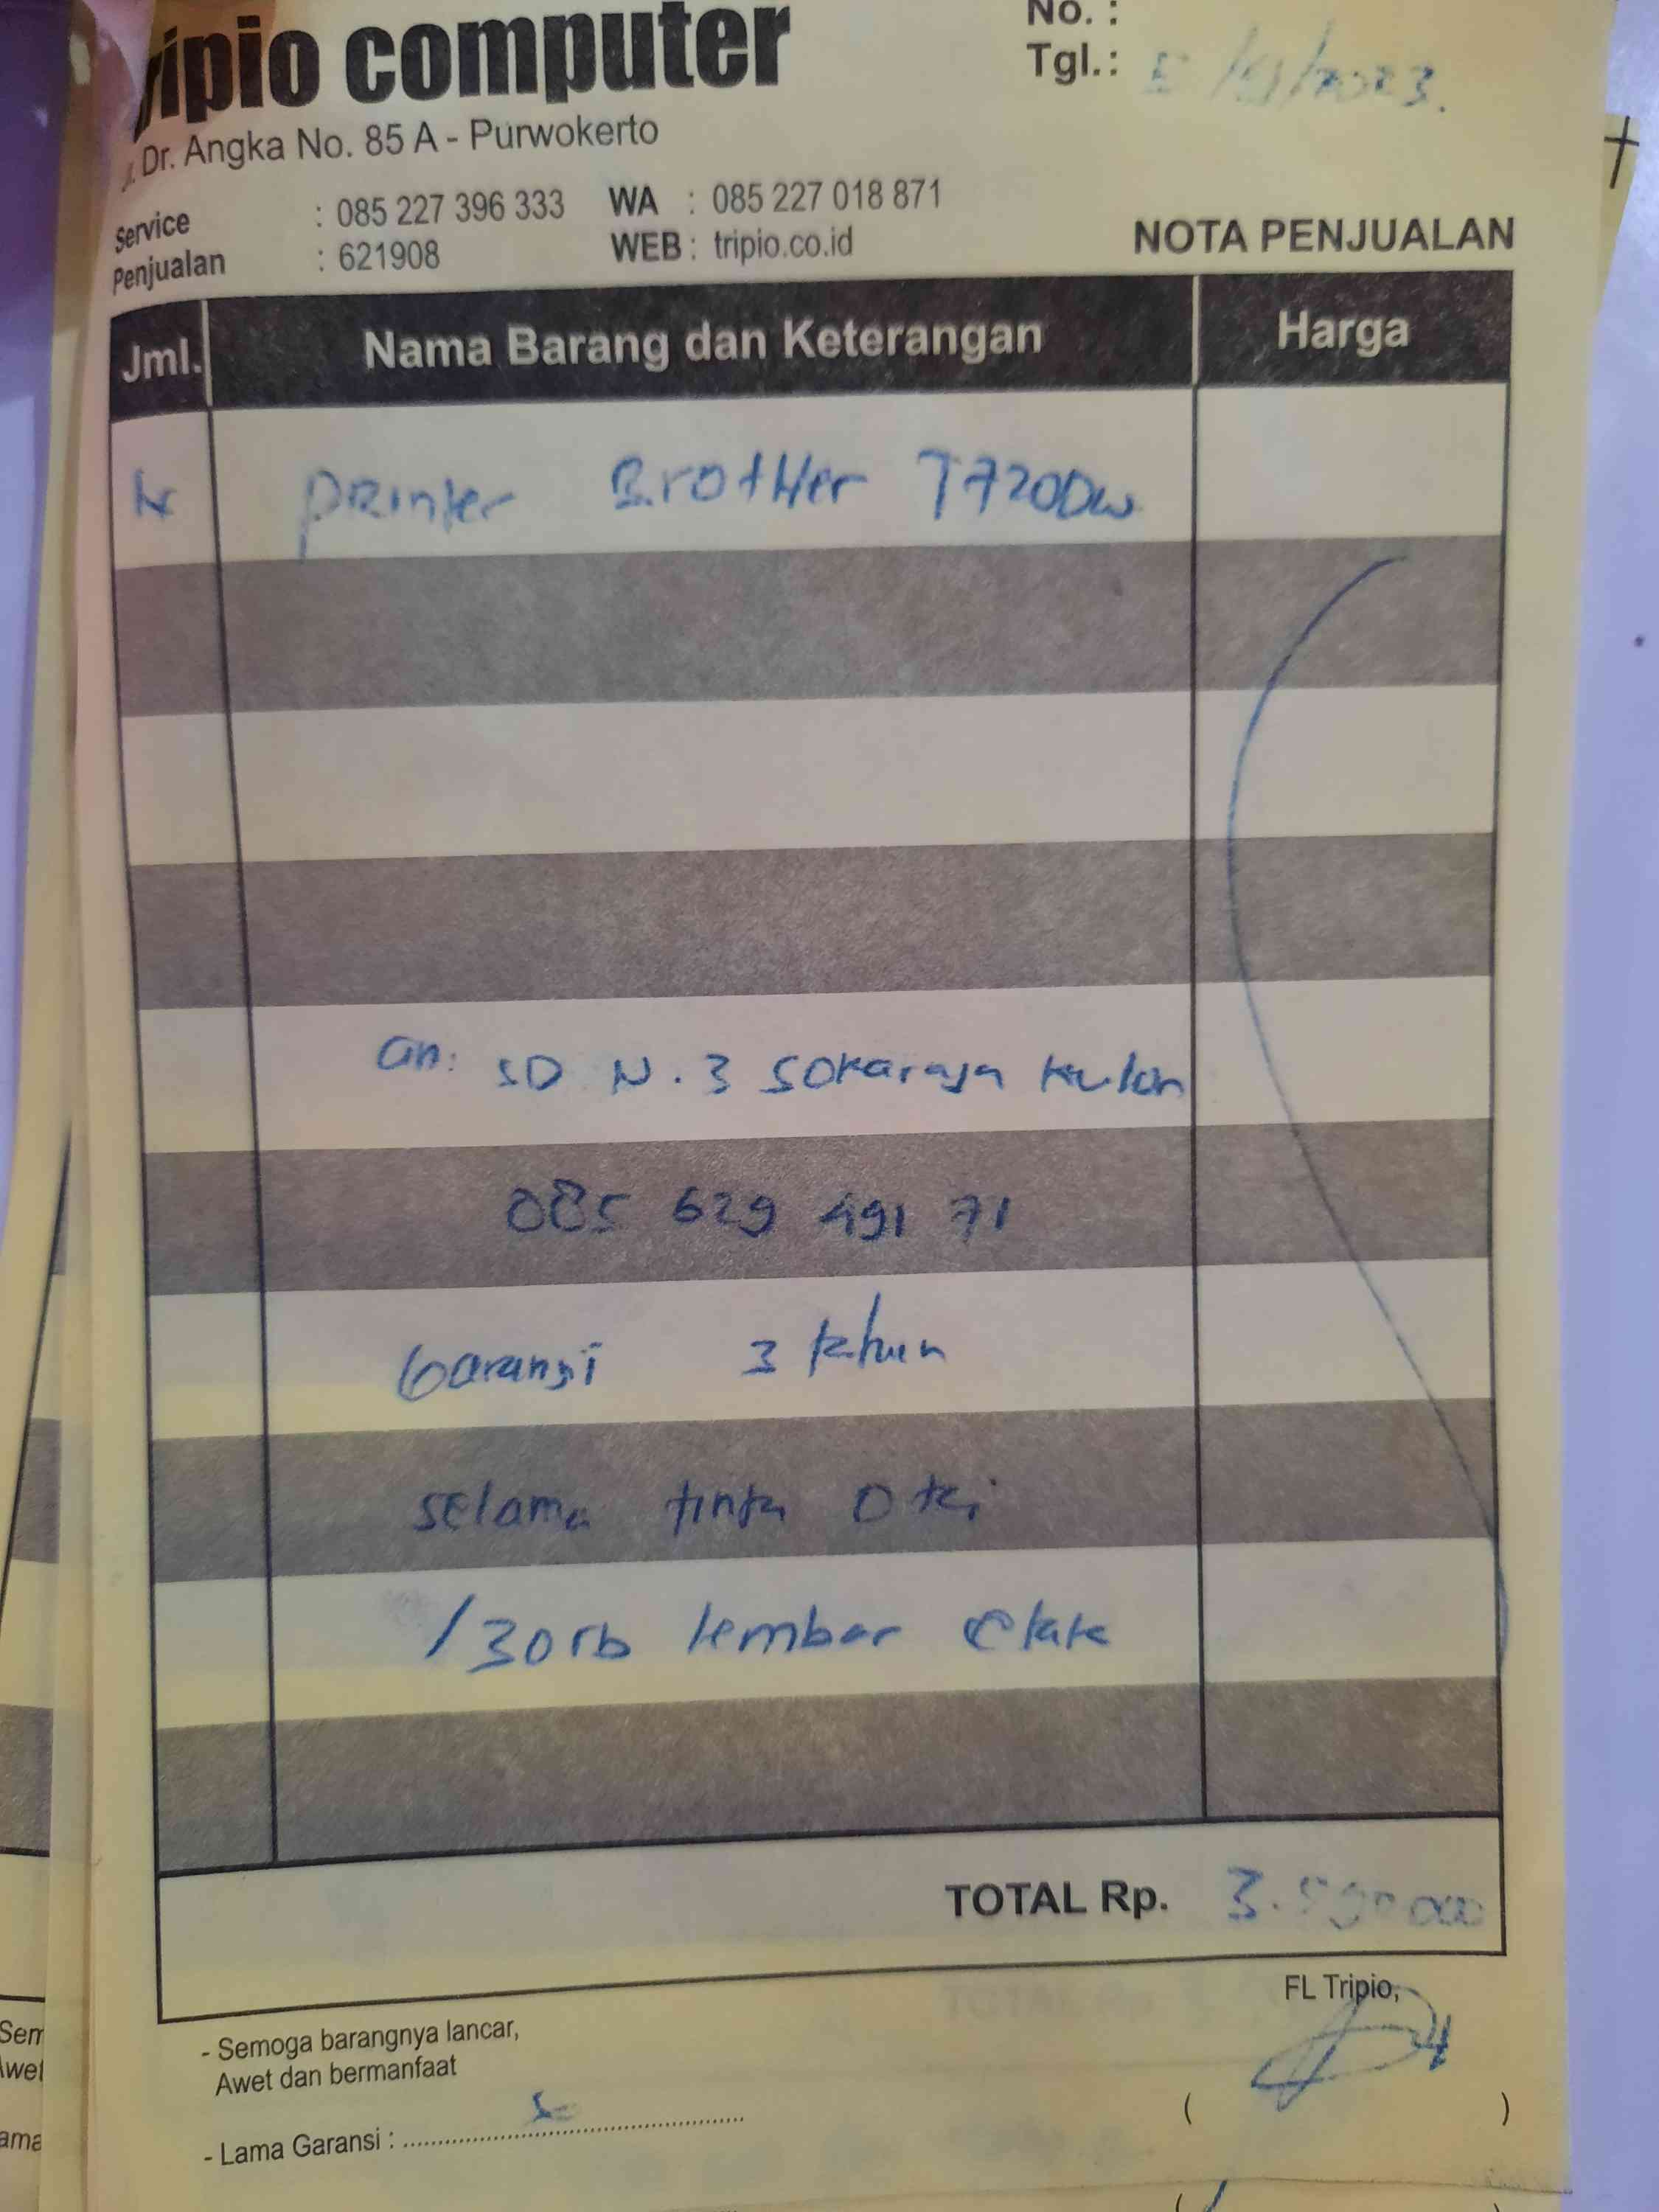 Tripio computer
No. :
Tgl.: /2023.
Jl. Dr. Angka No. 85 A - Purwokerto
Service : 085 227 396 333 WA : 085 227 018 871
Penjualan : 621908 WEB : tripio.co.id
NOTA PENJUALAN
Jml. Nama Barang dan Keterangan Harga
Printer Brother T720DW
an: SD N. 3 Sokaraja Kulon
085 629 491 71
Garansi 3 tahun
selama tinta Ori
/30rb lembar Cetak
TOTAL Rp.
FL Tripio,
- Semoga barangnya lancar,
Awet dan bermanfaat
( )
- Lama Garansi :